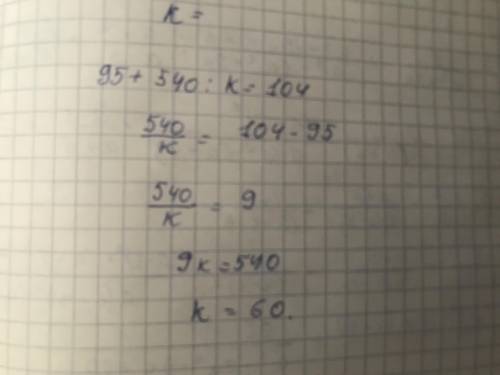 k =
95 + 540 : k = 104
540/k = 104 - 95
540/k = 9
9k = 540
k = 60.